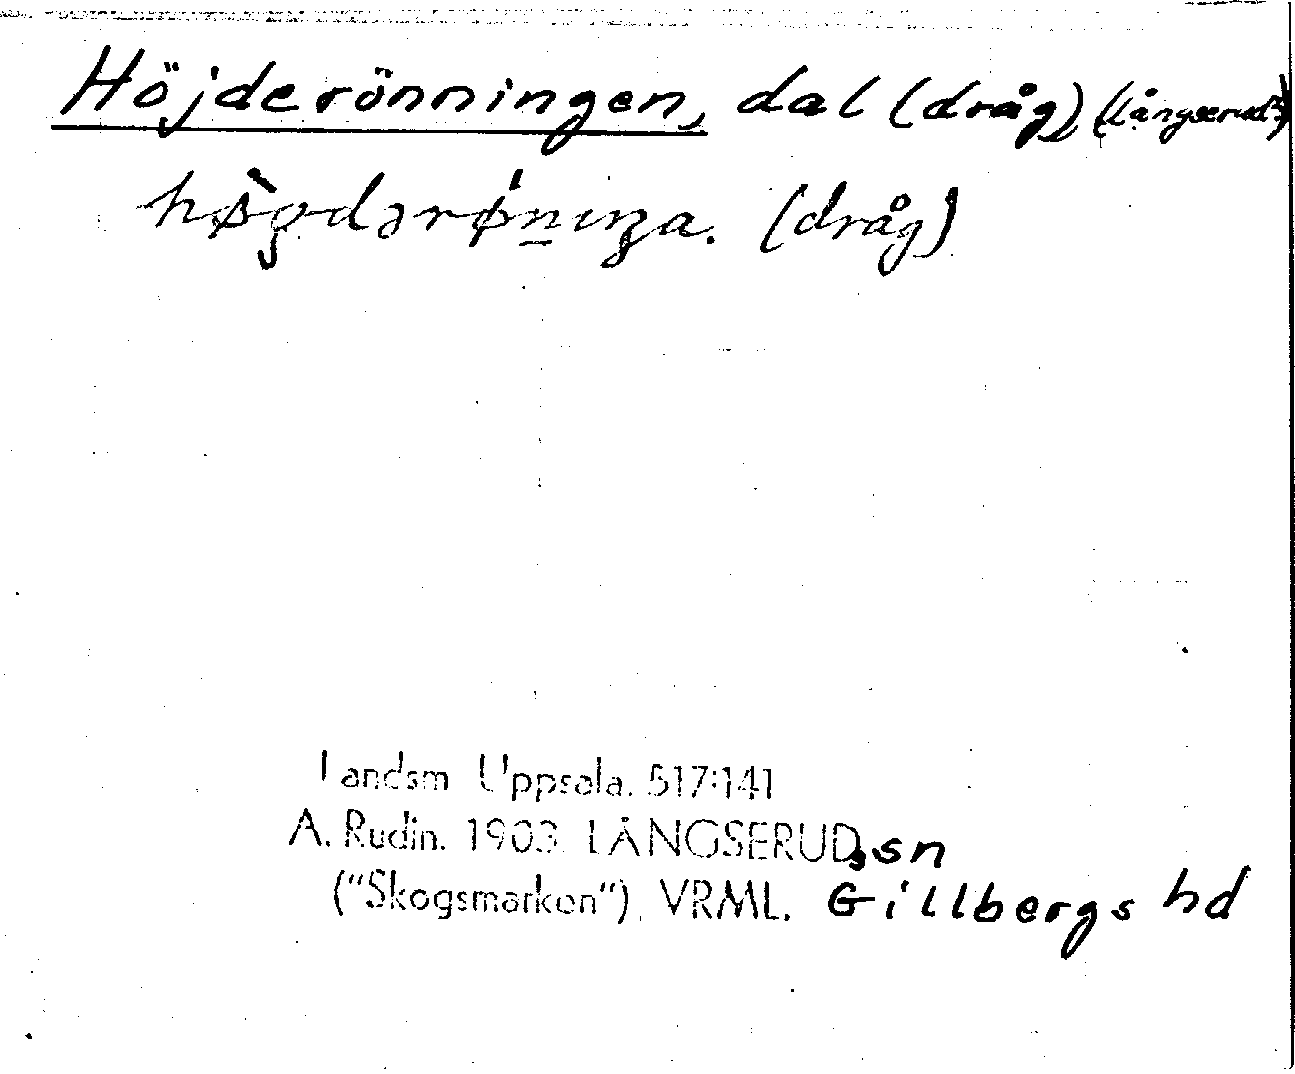 Höjderönningen, dal (dråg) (Långserud?)
hø̀gdərǿnıŋa. (dråg)
Landsm Uppsala. 517:141
A. Rudin. 1903. LÅNGSERUD, sn
("Skogsmarken"). VRML. Gillbergs hd